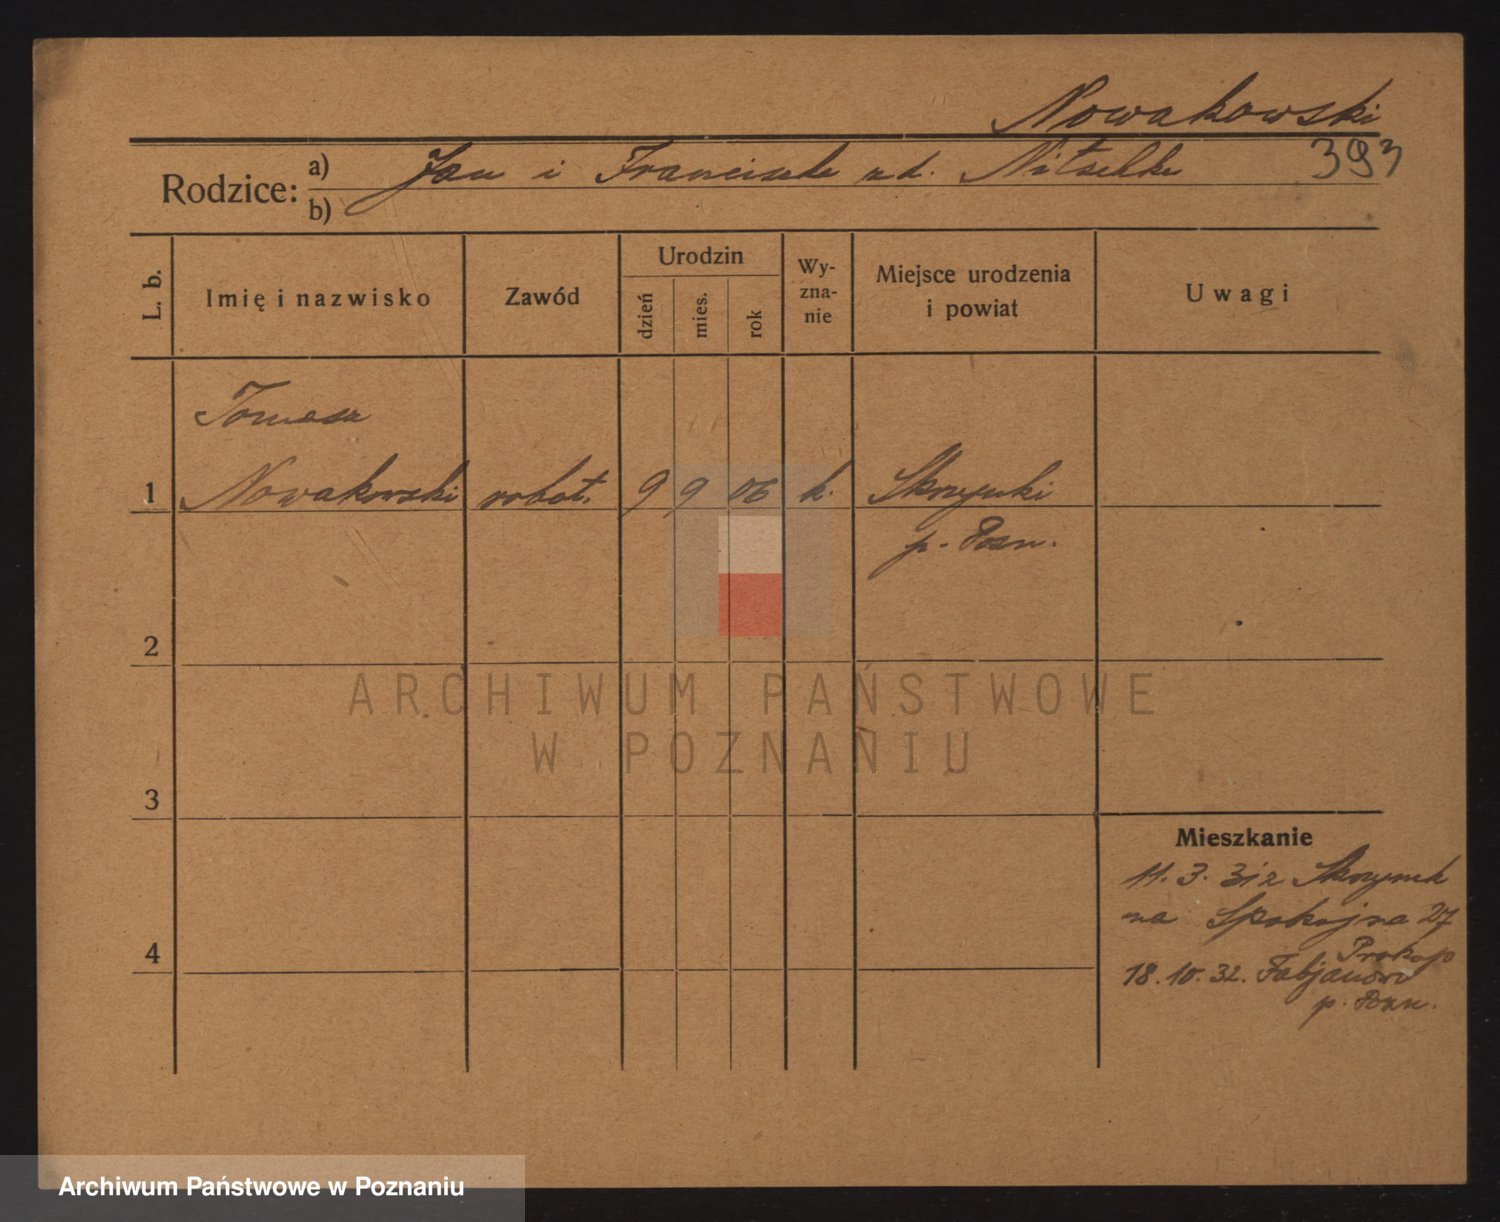 Nowakowski
Rodzice: a) Jan i Franciszka zd. Nitschke 393
b)
L. b. Imię i nazwisko Zawód Urodzin dzień mies. rok Wy-zna-nie Miejsce urodzenia i powiat Uwagi
Tomasz
1 Nowakowski robot. 9 9 06 k. Skrzynki
p. Pozn.
2
ARCHIWUM PAŃSTWOWE
W POZNANIU
3
Mieszkanie
11. 3. 31 z Skrzynek
na Spokojna 27
Prokop
4
18. 10. 32. Fabjanowo
p. Pozn.
Archiwum Państwowe w Poznaniu